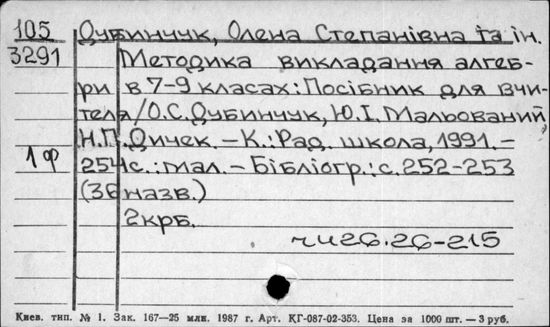 105 Дубинчук, Олена Степанівна та ін.
3291 Методика викладання алгеб-
ри в 7-9 класах: Посібник для вчи-
теля/О.С.Дубинчук, Ю.І.Мальований
Н.П.Дичек. – К.: Рад. школа, 1991. –
1ф 254с.: мал. – Бібліогр.: с. 252-253
(36 назв.)
2крб.
чи26.26-215
Киев. тип. № 1. Зак. 167—25 млн. 1987 г. Арт. КГ-087-02-353. Цена за 1000 шт. — 3 руб.